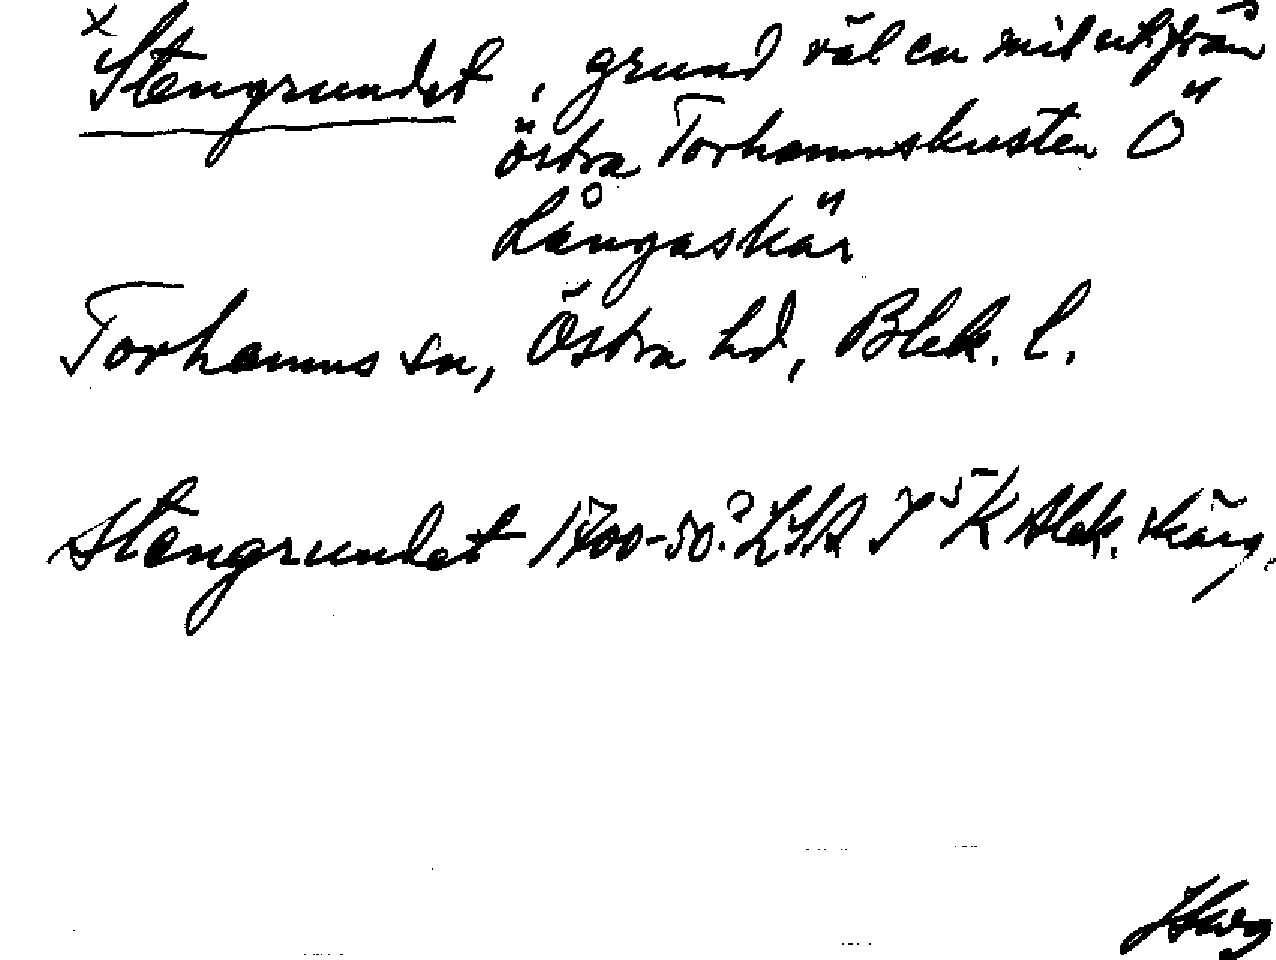 x Stengrundet, grund väl en mil ut från
östra Torhamnskusten Ö
Långaskär
Torhamns sn, Östra hd, Blek. l.
Stengrundet 1700-50? LSA Blek. skärg.